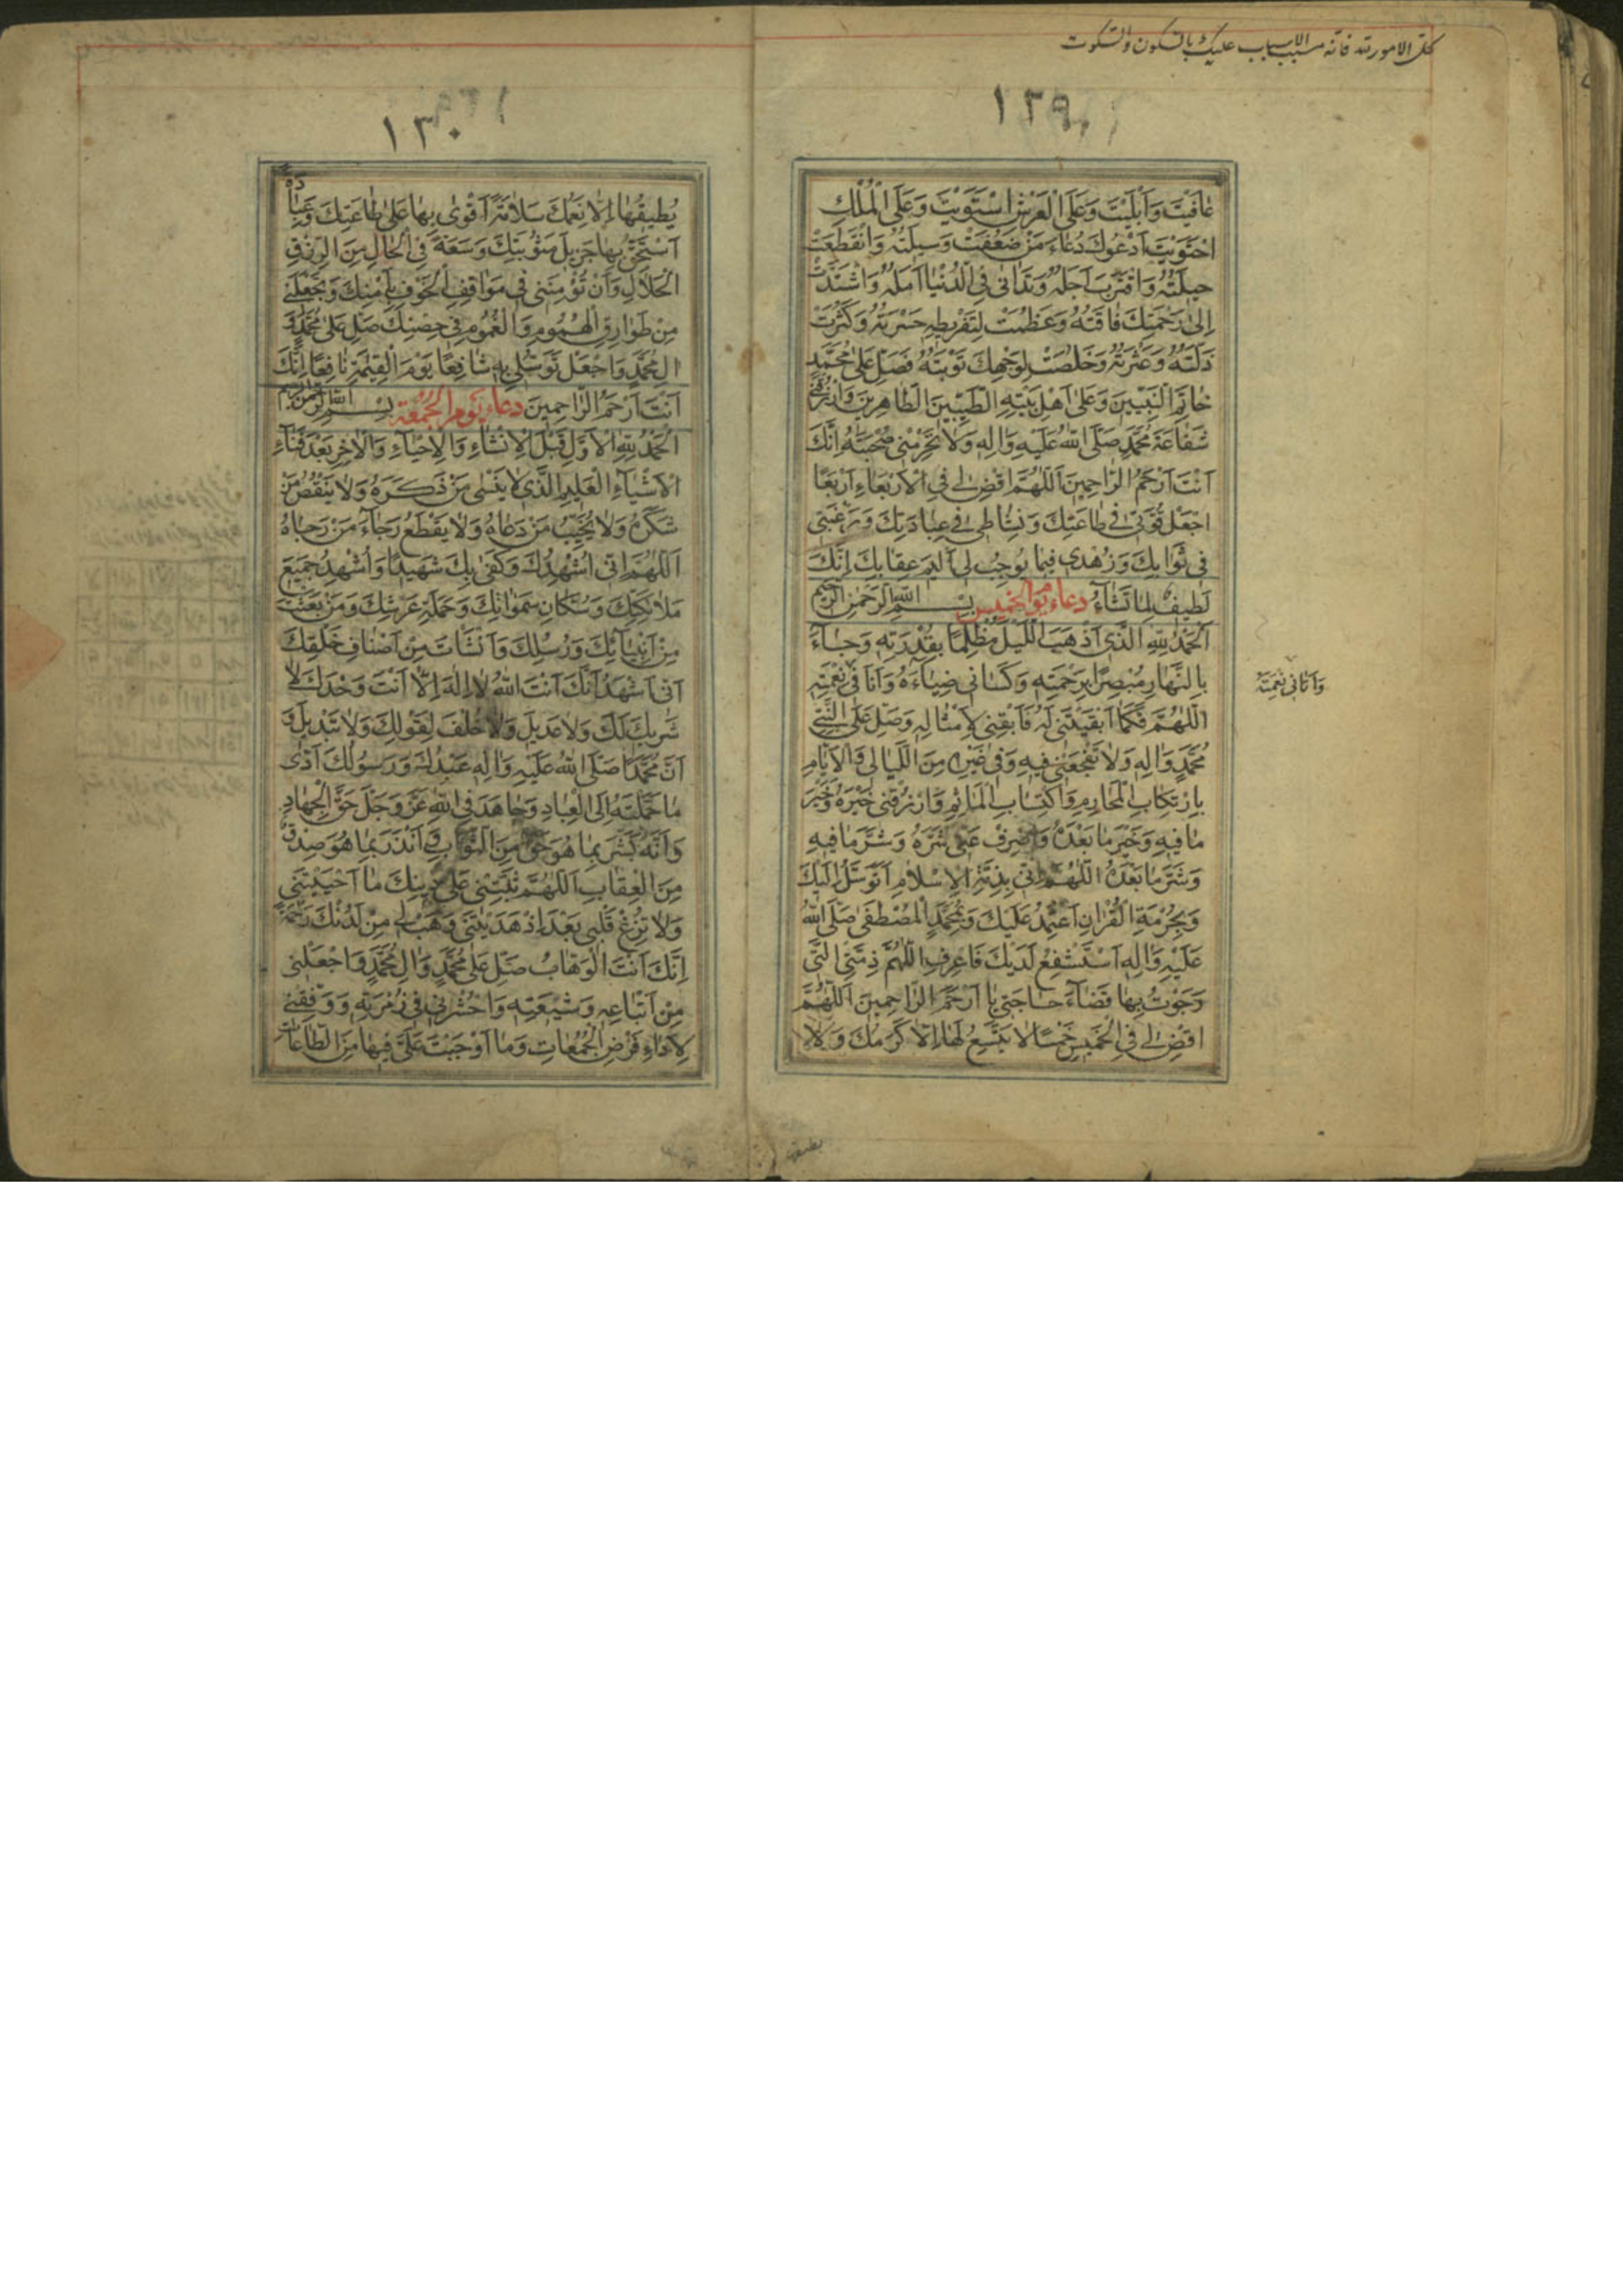 كل الامور لله فانه مسبب الاسباب عليك بالسكون والسكوت
١٢٩
عٰافَيْتَ وَاَبْلَيْتَ وَعَلَى الْعَرْشِ اسْتَوَيْتَ وَعَلَى الْمُلْكِ
احْتَوَيْتَ اَدْعُوكَ دُعٰاءَ مَنْ ضَعُفَتْ وَسيلَتُهُ وَانْقَطَعَتْ
حيلَتُهُ وَاقْتَرَبَ اَجَلُهُ وَتَدٰانٰى فِى الدُّنْيٰا اَمَلُهُ وَاشْتَدَّتْ
اِلىٰ رَحْمَتِكَ فٰاقَتُهُ وَعَظُمَتْ لِتَفْريطِهِ حَسْرَتُهُ وَكَثُرَتْ
زَلَّتُهُ وَعَثْرَتُهُ وَخَلُصَتْ لِوَجْهِكَ تَوْبَتُهُ فَصَلِّ عَلىٰ مُحَمَّدٍ
خٰاتَمِ النَّبِيّينَ وَعَلىٰ اَهْلِ بَيْتِهِ الطَّيِّبينَ الطّٰاهِرينَ وَارْزُقْنى
شَفٰاعَةَ مُحَمَّدٍ صَلَّى اللهُ عَلَيْهِ وَاٰلِهِ وَلٰا تَحْرِمْنى صُحْبَتَهُ اِنَّكَ
اَنْتَ اَرْحَمُ الرّٰاحِمينَ اَللّٰهُمَّ اقْضِ لى فِى الْاَرْبَعٰاءِ اَرْبَعًا
اجْعَلْ قُوَّتى فى طٰاعَتِكَ وَنَشٰاطى فى عِبٰادَتِكَ وَرَغْبَتى
فى ثَوٰابِكَ وَزُهْدى فيمٰا يُوجِبُ لى اَليمَ عِقٰابِكَ اِنَّكَ
لَطيفٌ لِمٰا تَشٰاءُ دعاء يوم الخميس بِسْمِ اللهِ الرَّحْمٰنِ الرَّحيمِ
اَلْحَمْدُ لِلّٰهِ الَّذى اَذْهَبَ اللَّيْلَ مُظْلِمًا بِقُدْرَتِهِ وَجٰاءَ
بِالنَّهٰارِ مُبْصِرًا بِرَحْمَتِهِ وَكَسٰانى ضِيٰاءَهُ وَاَنَا فى نِعْمَتِهِ
وَاٰتانى نِعْمَتَهُ
اَللّٰهُمَّ فَكَمٰا اَبْقَيْتَنى لَهُ فَاَبْقِنى لِاَمْثٰالِهِ وَصَلِّ عَلَى النَّبِىِّ
مُحَمَّدٍ وَاٰلِهِ وَلٰا تَفْجَعْنى فيهِ وَفى غَيْرِهِ مِنَ اللَّيٰالى وَالْاَيّٰامِ
بِارْتِكٰابِ الْمَحٰارِمِ وَاكْتِسٰابِ الْمَاٰثِمِ وَارْزُقْنى خَيْرَهُ وَخَيْرَ
مٰا فيهِ وَخَيْرَ مٰا بَعْدَهُ وَاصْرِفْ عَنّى شَرَّهُ وَشَرَّ مٰا فيهِ
وَشَرَّ مٰا بَعْدَهُ اَللّٰهُمَّ اِنّى بِذِمَّةِ الْاِسْلٰامِ اَتَوَسَّلُ اِلَيْكَ
وَبِحُرْمَةِ الْقُرْاٰنِ اَعْتَمِدُ عَلَيْكَ وَبِمُحَمَّدٍ الْمُصْطَفٰى صَلَّى اللهُ
عَلَيْهِ وَاٰلِهِ اَسْتَشْفِعُ لَدَيْكَ فَاعْرِفِ اللّٰهُمَّ ذِمَّتِىَ الَّتى
رَجَوْتُ بِهٰا قَضٰاءَ حٰاجَتى يٰا اَرْحَمَ الرّٰاحِمينَ اَللّٰهُمَّ
اقْضِ لى فِى الْخَميسِ خَمْسًا لٰا يَتَّسِعُ لَهٰا اِلّٰا كَرَمُكَ وَلٰا
يطيقها
١٣٠
يُطيقُهٰا اِلّٰا نِعَمُكَ سَلٰامَةً اَقْوٰى بِهٰا عَلىٰ طٰاعَتِكَ وَعِبٰادَةً
اَسْتَحِقُّ بِهٰا جَزيلَ مَثُوبَتِكَ وَسَعَةً فِى الْحٰالِ مِنَ الرِّزْقِ
الْحَلٰالِ وَاَنْ تُؤْمِنَنى فى مَوٰاقِفِ الْخَوْفِ بِاَمْنِكَ وَتَجْعَلَنى
مِنْ طَوٰارِقِ الْهُمُومِ وَالْغُمُومِ فى حِصْنِكَ صَلِّ عَلىٰ مُحَمَّدٍ وَ
اٰلِ مُحَمَّدٍ وَاجْعَلْ تَوَسُّلى بِهِ شٰافِعًا يَوْمَ الْقِيٰمَةِ نٰافِعًا اِنَّكَ
اَنْتَ اَرْحَمُ الرّٰاحِمينَ دعاء يوم الجمعة بِسْمِ اللهِ الرَّحْمٰنِ الرَّحيمِ
اَلْحَمْدُ لِلّٰهِ الْاَوَّلِ قَبْلَ الْاِنْشٰاءِ وَالْاِحْيٰاءِ وَالْاٰخِرِ بَعْدَ فَنٰاءِ
الْاَشْيٰاءِ الْعَليمِ الَّذى لٰا يَنْسٰى مَنْ ذَكَرَهُ وَلٰا يَنْقُصُ مَنْ
شَكَرَهُ وَلٰا يُخَيِّبُ مَنْ دَعٰاهُ وَلٰا يَقْطَعُ رَجٰاءَ مَنْ رَجٰاهُ
اَللّٰهُمَّ اِنّى اُشْهِدُكَ وَكَفٰى بِكَ شَهيدًا وَاُشْهِدُ جَميعَ
مَلٰائِكَتِكَ وَسُكّٰانِ سَمٰوٰاتِكَ وَحَمَلَةِ عَرْشِكَ وَمَنْ بَعَثْتَ
مِنْ اَنْبِيٰائِكَ وَرُسُلِكَ وَاَنْشَاْتَ مِنْ اَصْنٰافِ خَلْقِكَ
اَنّى اَشْهَدُ اَنَّكَ اَنْتَ اللهُ لٰا اِلٰهَ اِلّٰا اَنْتَ وَحْدَكَ لٰا
شَريكَ لَكَ وَلٰا عَديلَ وَلٰا خُلْفَ لِقَوْلِكَ وَلٰا تَبْديلَ وَ
اَنَّ مُحَمَّدًا صَلَّى اللهُ عَلَيْهِ وَاٰلِهِ عَبْدُكَ وَرَسُولُكَ اَدّٰى
مٰا حَمَّلْتَهُ اِلَى الْعِبٰادِ وَجٰاهَدَ فِى اللهِ عَزَّ وَجَلَّ حَقَّ الْجِهٰادِ
وَاَنَّهُ بَشَّرَ بِمٰا هُوَ حَقٌّ مِنَ الثَّوٰابِ وَاَنْذَرَ بِمٰا هُوَ صِدْقٌ
مِنَ الْعِقٰابِ اَللّٰهُمَّ ثَبِّتْنى عَلىٰ دينِكَ مٰا اَحْيَيْتَنى
وَلٰا تُزِغْ قَلْبى بَعْدَ اِذْ هَدَيْتَنى وَهَبْ لى مِنْ لَدُنْكَ رَحْمَةً
اِنَّكَ اَنْتَ الْوَهّٰابُ صَلِّ عَلىٰ مُحَمَّدٍ وَاٰلِ مُحَمَّدٍ وَاجْعَلْنى
مِنْ اَتْبٰاعِهِ وَشيعَتِهِ وَاحْشُرْنى فى زُمْرَتِهِ وَوَفِّقْنى
لِاَدٰاءِ فَرْضِ الْجُمُعٰاتِ وَمٰا اَوْجَبْتَ عَلَىَّ فيهٰا مِنَ الطّٰاعٰاتِ